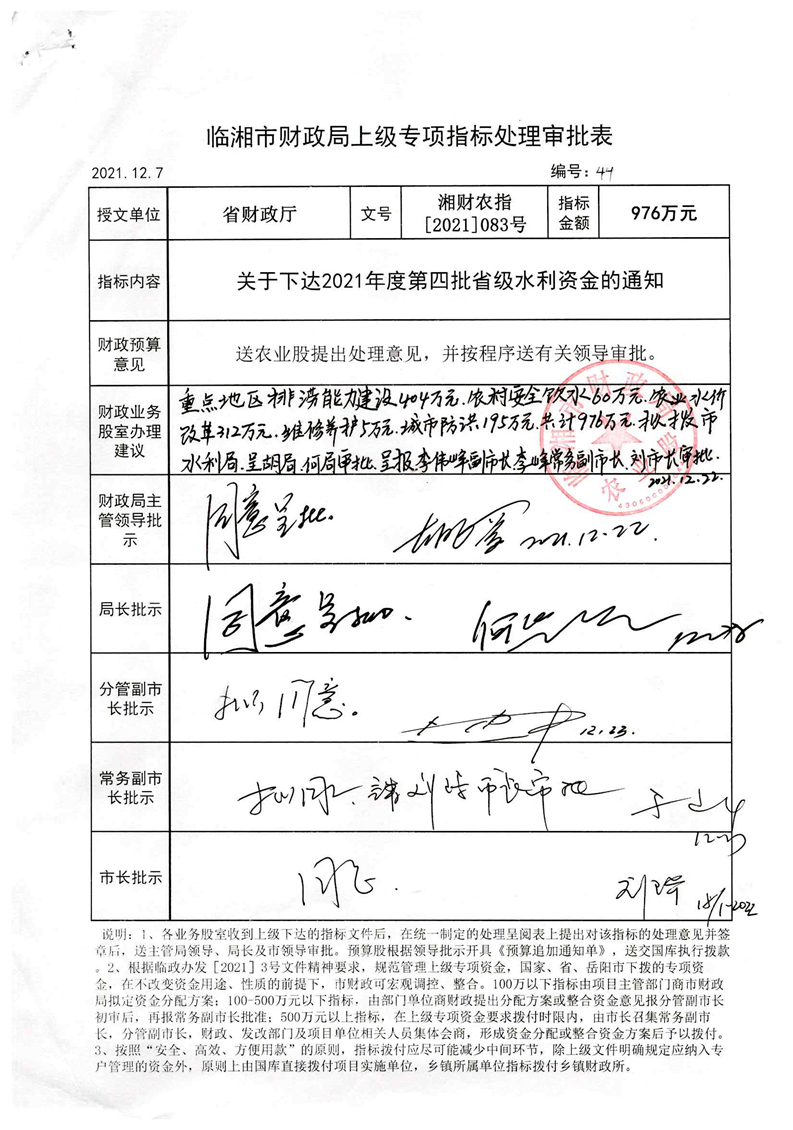 临湘市财政局上级专项指标处理审批表
2021.12.7 编号：44
授文单位 省财政厅 文号 湘财农指[2021]083号 指标金额 976万元
指标内容 关于下达2021年度第四批省级水利资金的通知
财政预算意见 送农业股提出处理意见，并按程序送有关领导审批。
财政业务股室办理建议
重点地区排涝能力建设404万元.农村安全饮水60万元.农业水价
改革312万元.维修养护5万元.城市防洪195万元.共计976万元.拟拨市
水利局.呈胡局.何局审批.呈报李伟峰副市长李峰常务副市长.刘市长审批.
2021.12.22.
财政局主管领导批示
同意呈批。
2021.12.22.
局长批示
同意呈批.
分管副市长批示
拟同意。
12.23.
常务副市长批示
市长批示
同意.
18/1-2022
说明：1、各业务股室收到上级下达的指标文件后，在统一制定的处理呈阅表上提出对该指标的处理意见并签
章后，送主管局领导、局长及市领导审批。预算股根据领导批示开具《预算追加通知单》，送交国库执行拨款
。2、根据临政办发［2021］3号文件精神要求，规范管理上级专项资金，国家、省、岳阳市下拨的专项资
金，在不改变资金用途、性质的前提下，市财政可宏观调控、整合。100万以下指标由项目主管部门商市财政
局拟定资金分配方案；100-500万元以下指标，由部门单位商财政提出分配方案或整合资金意见报分管副市长
初审后，再报常务副市长批准；500万元以上指标，在上级专项资金要求拨付时限内，由市长召集常务副市
长，分管副市长，财政、发改部门及项目单位相关人员集体会商，形成资金分配或整合资金方案后予以拨付。
3、按照“安全、高效、方便用款”的原则，指标拨付应尽可能减少中间环节，除上级文件明确规定应纳入专
户管理的资金外，原则上由国库直接拨付项目实施单位，乡镇所属单位指标拨付乡镇财政所。